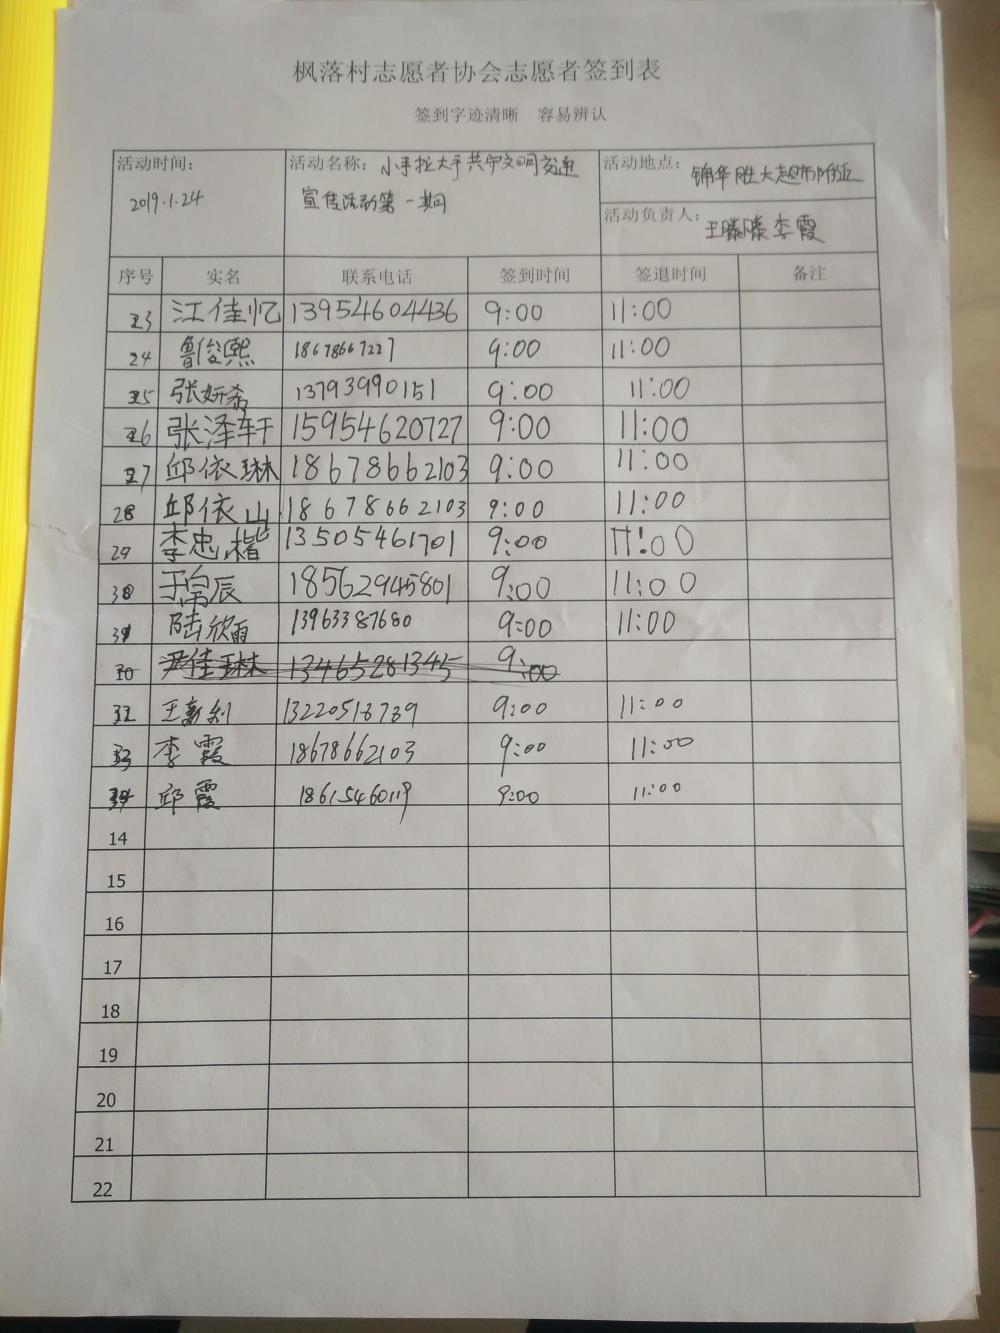 枫落村志愿者协会志愿者签到表
签到字迹清晰 容易辨认
活动时间: 2019.1.24
活动名称: 小手拉大手共守文明交通
宣传活动第一期
活动地点: 锦华胜大超市附近
活动负责人: 王滕滕 李霞
序号 实名 联系电话 签到时间 签退时间 备注
23 江佳忆 13954604436 9:00 11:00
24 鲁俊熙 18678667227 9:00 11:00
25 张妍希 13793990151 9:00 11:00
26 张泽轩 15954620727 9:00 11:00
27 邱依琳 18678662103 9:00 11:00
28 邱依山 18678662103 9:00 11:00
29 李忠楷 13505461701 9:00 11:00
30 于帛辰 18562945801 9:00 11:00
31 陆欣雨 13963387680 9:00 11:00
10 尹佳琳 13465281345 9:00
32 王新利 13220518789 9:00 11:00
33 李霞 18678662103 9:00 11:00
34 邱霞 18615460119 9:00 11:00
14
15
16
17
18
19
20
21
22